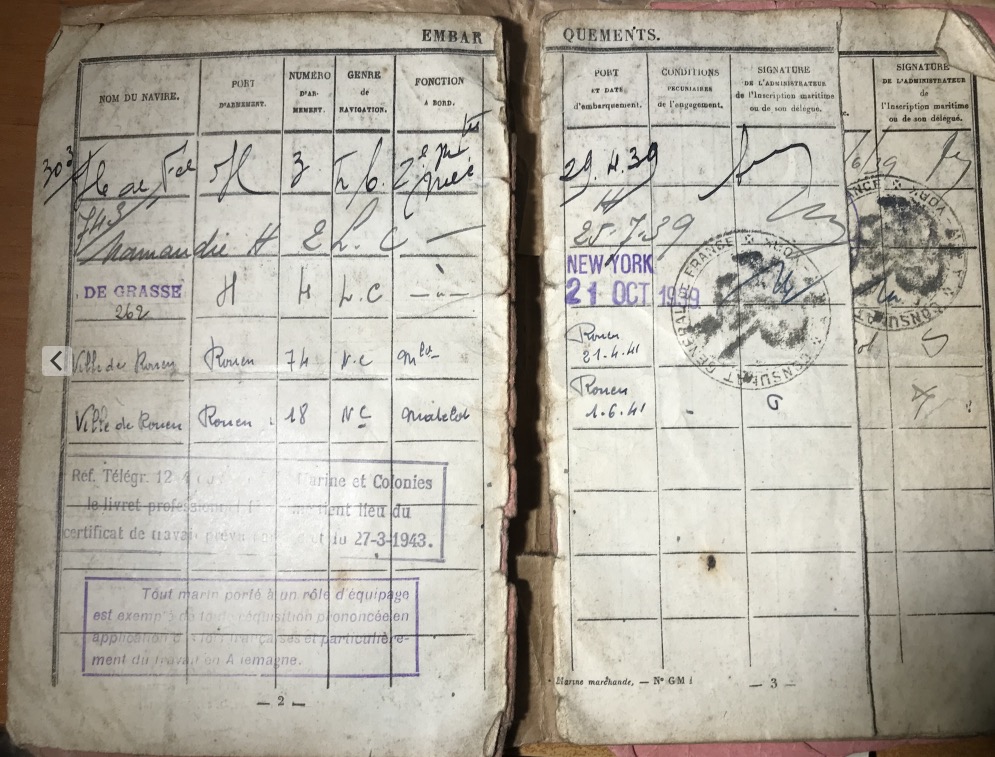 EMBARQUEMENTS.
NOM DU NAVIRE.
PORT
D'ARMEMENT.
NUMÉRO
D'AR-
MEMENT.
GENRE
de
NAVIGATION.
FONCTION
A BORD.
PORT
ET DATE
d'embarquement.
CONDITIONS
PÉCUNIAIRES
de l'engagement.
SIGNATURE
DE L'ADMINISTRATEUR
de l'Inscription maritime
ou de son délégué.
SIGNATURE
DE L'ADMINISTRATEUR
de l'Inscription maritime
ou de son délégué.
303
Ile de H 3 29.4.39
743
Normandie H 2 L. C 25.7.39
DE GRASSE H 4 L.C
262
NEW YORK
21 OCT 1939
Ville de Rouen Rouen 74 N.C Rouen
21.4.41
Ville de Rouen Rouen 18 NC Matelot Rouen
1.6.41
CONSULAT GÉNÉRAL DE FRANCE
Réf. Télégr. 12 Marine et Colonies
le livret professionnel tient lieu du
certificat de travail prévu 27-3-1943.
Tout marin porté à un rôle d'équipage
est exempté de toute réquisition prononcée en
application des lois françaises et particulière-
ment du travail en Allemagne.
— 2 —
Marine marchande. — N° GM 1
— 3 —